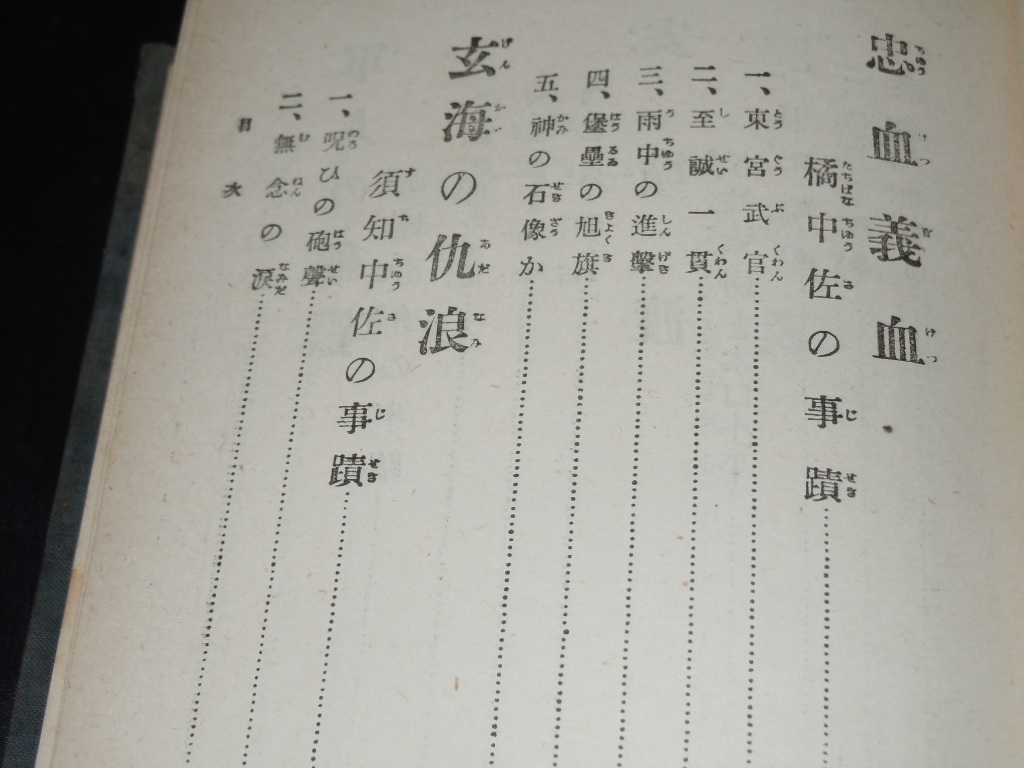 忠血義血
橘中佐の事蹟
一、東宮武官
二、至誠一貫
三、雨中の進擊
四、堡壘の旭旗
五、神の石像か
玄海の仇浪
須知中佐の事蹟
一、呪ひの砲聲
二、無念の淚
目次